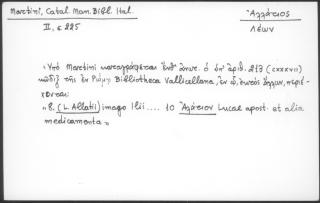 Martini, Catal. Man. Bibl. Ital.
II, σ 225
Ἀλλάτιος
Λέων
Ὑπὸ Martini καταγράφεται ἐνθ' ἀνωτ. ὁ ὑπ' ἀριθ. 213 (CXXXVII)
κῶδιξ τῆς ἐν Ρώμῃ Bibliotheca Vallicellana, ἐν ᾧ, ἐκτὸς ἄλλων, περιέ-
χονται:
"8. (L. Allatii) imago Ilii .... 10 Ἀλλάτιου Lucae apost. et alia
medicamenta"